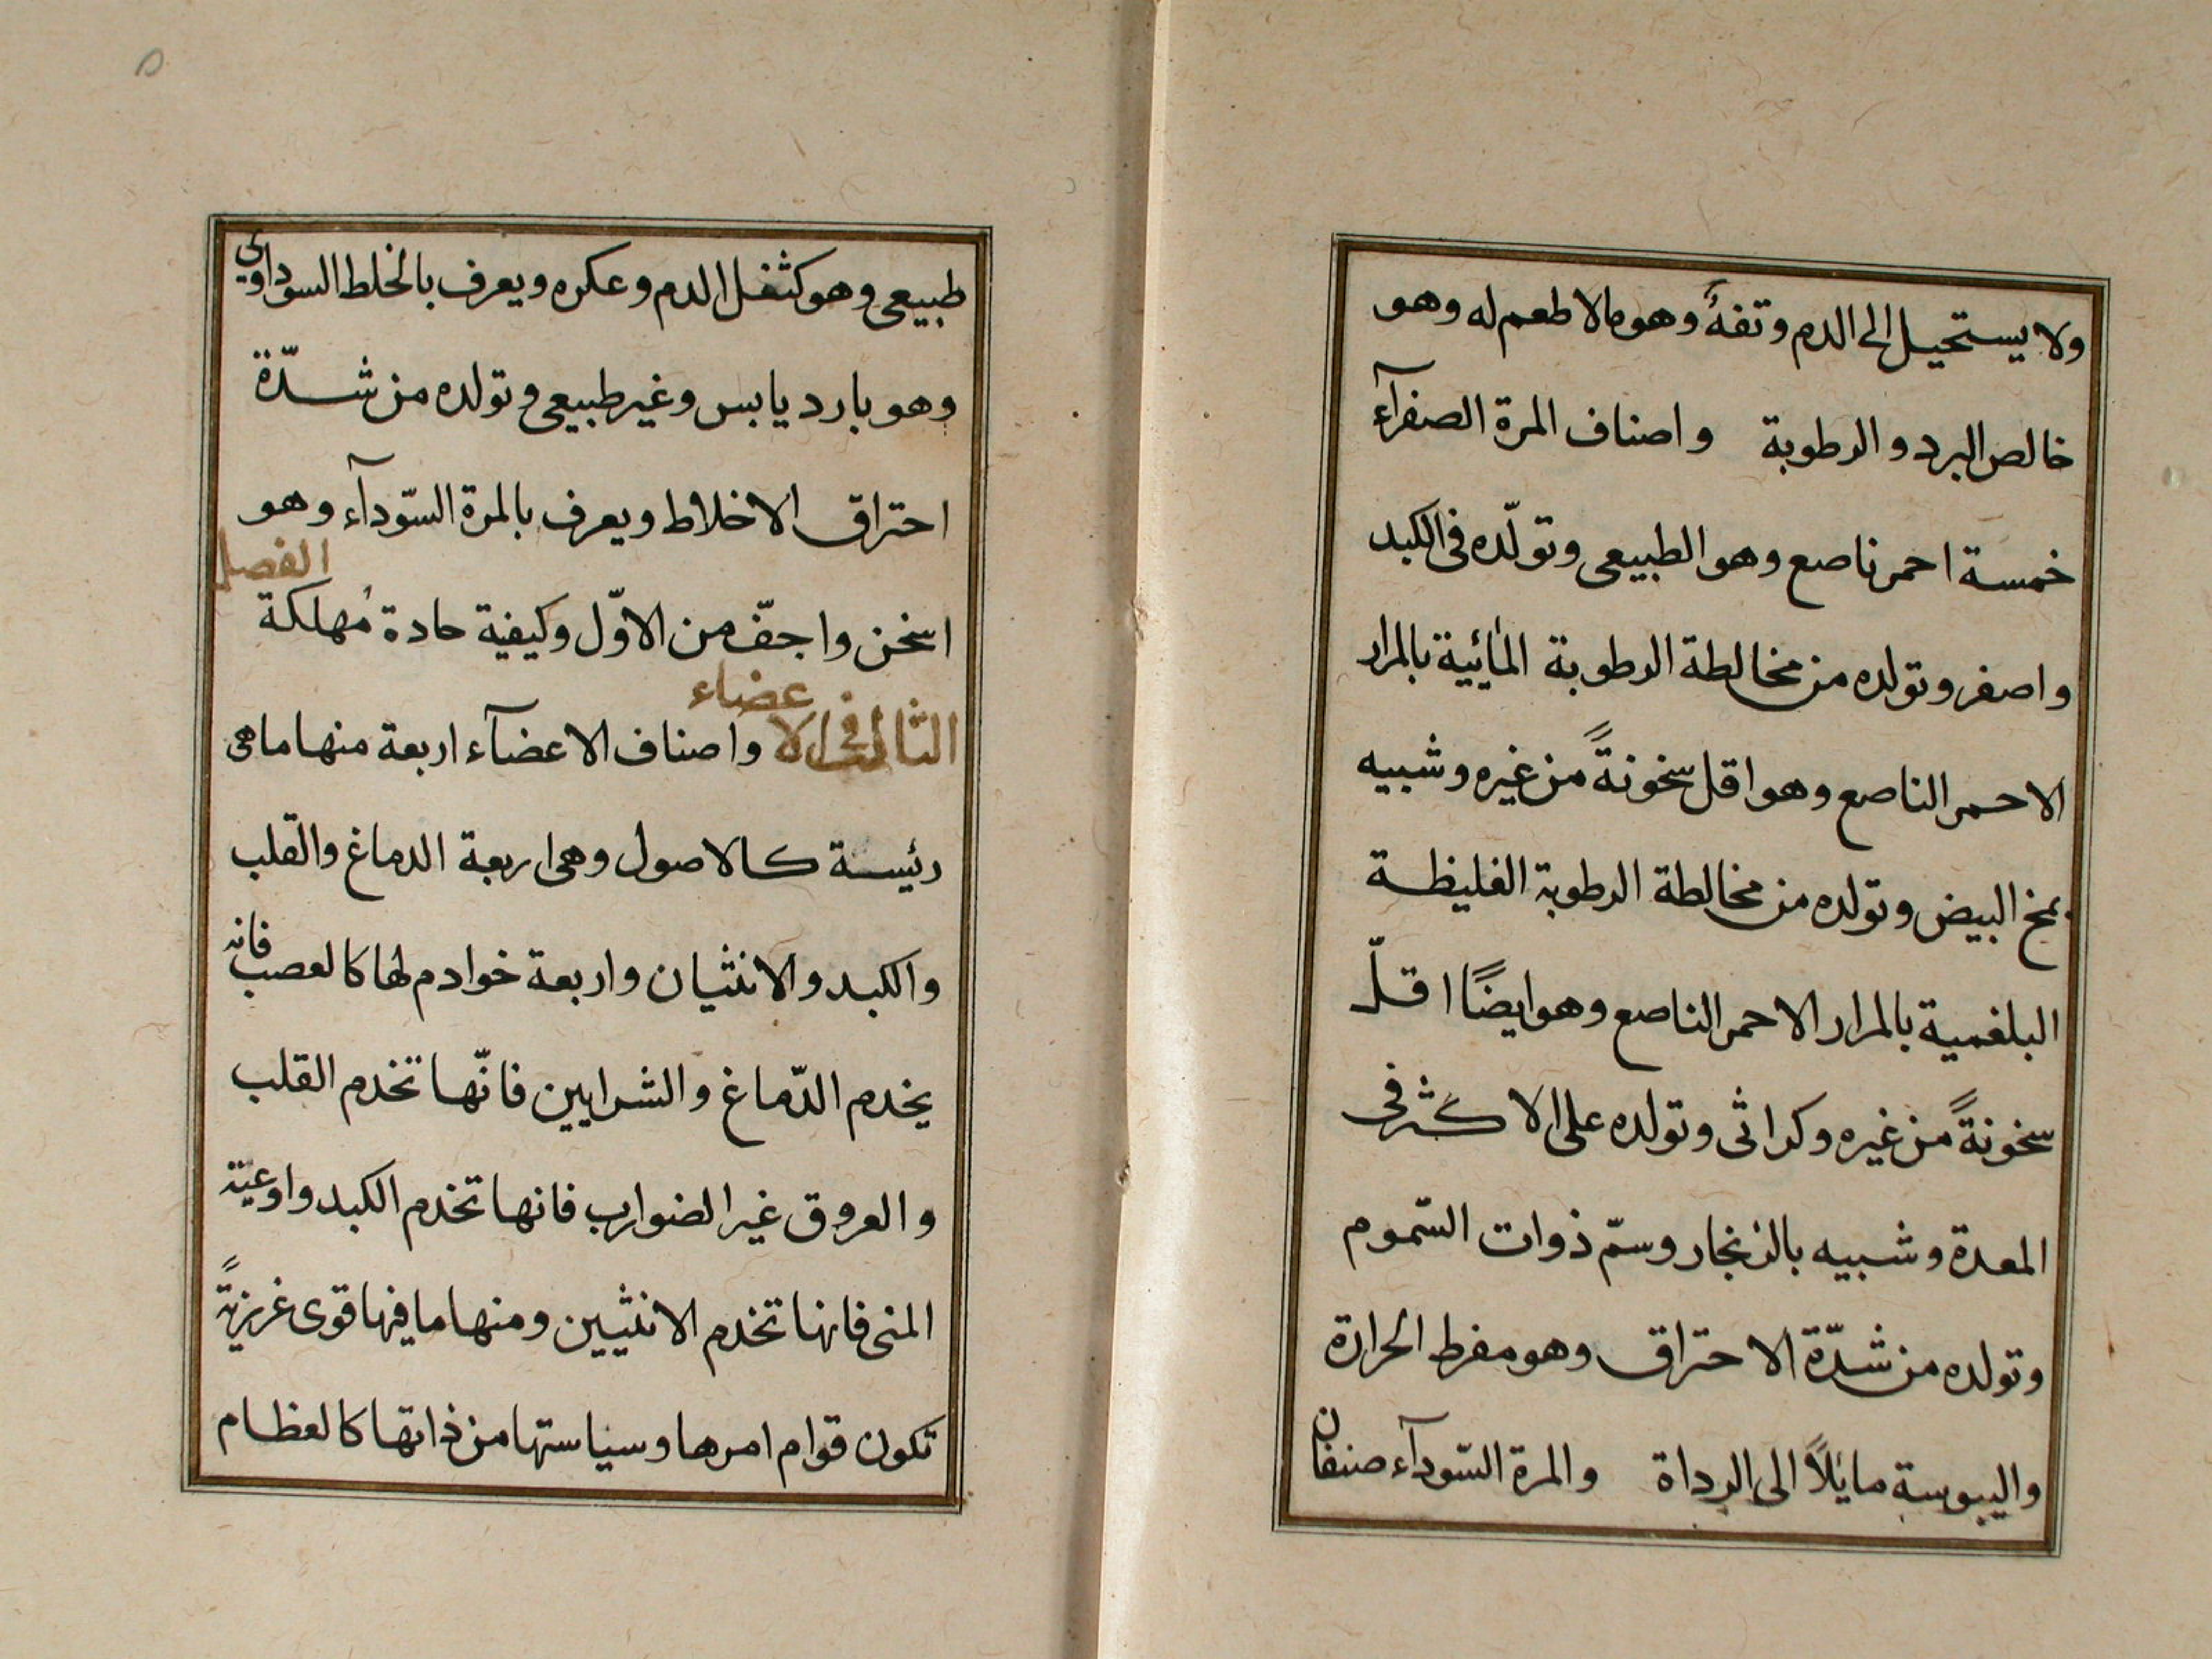 ولا يستحيل الى الدم وتفهٌ وهو مالا طعم له وهو
خالص البرد والرطوبة واصناف المرة الصفرآء
خمسة احمر ناصع وهو الطبيعى وتولّده فى الكبد
واصفر وتولده من مخالطة الرطوبة المائية بالمرار
الاحمر الناصع وهو اقل سخونةً من غيره وشبيه
بمخ البيض وتولده من مخالطة الرطوبة الغليظة
البلغمية بالمرار الاحمر الناصع وهو ايضًا اقلّ
سخونةً من غيره وكراثى وتولده على الاكثر فى
المعدة وشبيه بالزنجار وسمّ ذوات السّموم
وتولده من شدّة الاحتراق وهو مفرط الحرارة
واليبوسة مايلاً الى الرداة والمرة السّودآء صنفان
طبيعى وهو كثفل الدم وعكره ويعرف بالخلط السوداوى
وهو بارد يابس وغير طبيعى وتولده من شدّة
احتراق الاخلاط ويعرف بالمرة السّودآء وهو
اسخن واجفّ من الاوّل وكيفية حادة مُهلكة الفصل
الثالث فى الاعضاء واصناف الاعضآء اربعة منها ما هى
رئيسة كالاصول وهى اربعة الدماغ والقلب
والكبد والانثيان واربعة خوادم لها كالعصب فانه
يخدم الدّماغ والشرايين فانّها تخدم القلب
والعروق غير الضوارب فانها تخدم الكبد واوعية
المنى فانها تخدم الانثيين ومنها ما فيها قوى غريزيةً
تكون قوام امرها وسياستها من ذاتها كالعظام